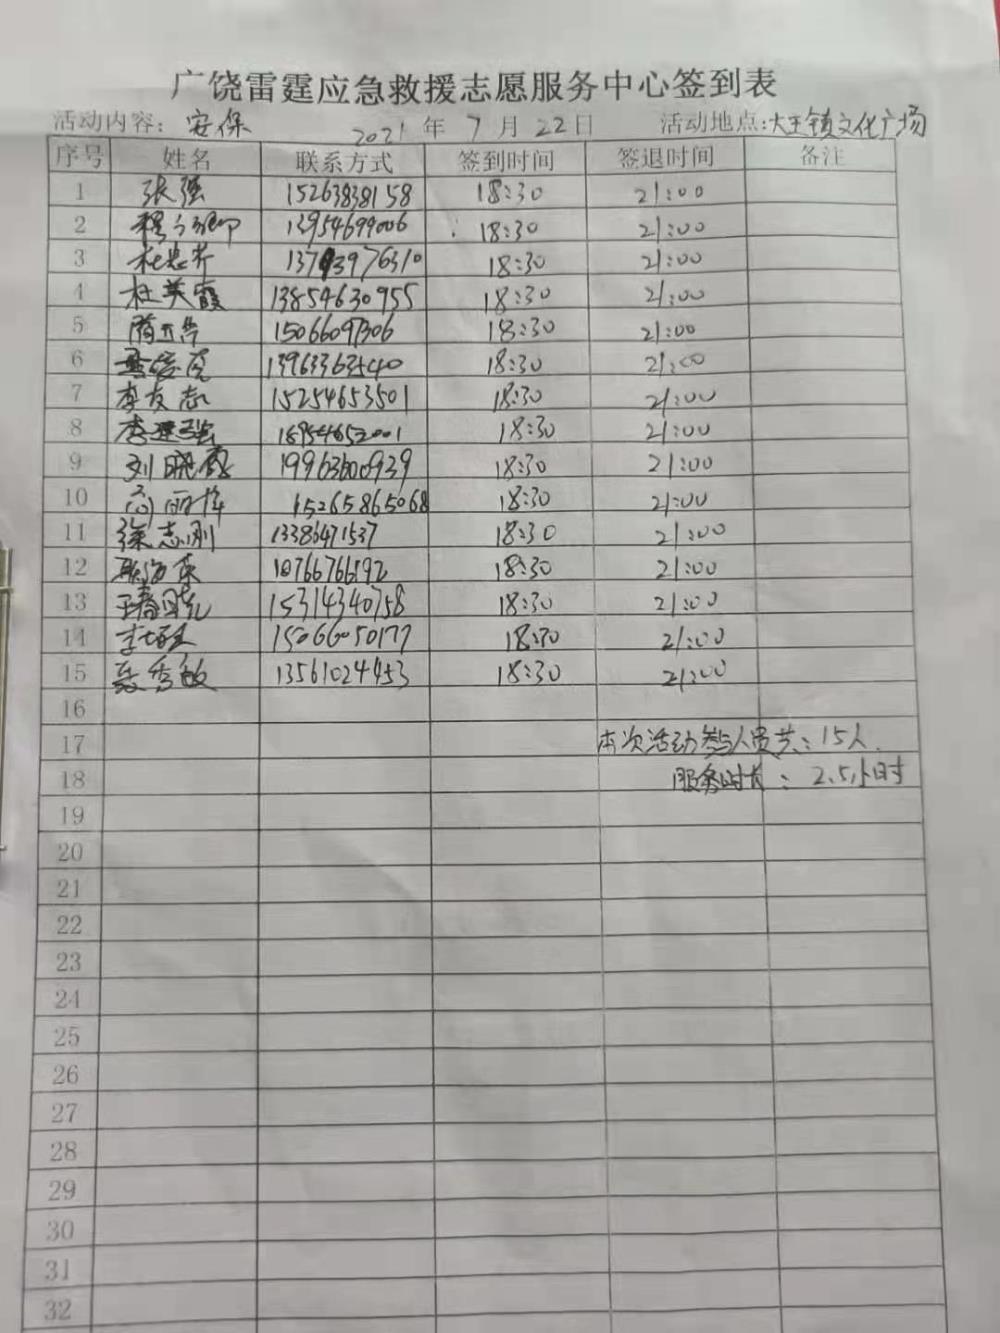 广饶雷霆应急救援志愿服务中心签到表
活动内容: 安保 2021 年 7 月 22 日 活动地点:大王镇文化广场
序号 姓名 联系方式 签到时间 签退时间 备注
1 张强 15263838158 18:30 21:00
2 13954699006 18:30 21:00
3 18:30 21:00
4 杜英霞 13854630955 18:30 21:00
5 15066097306 18:30 21:00
6 13963363540 18:30 21:00
7 李友志 15254653501 18:30 21:00
8 李建强 18954652001 18:30 21:00
9 刘晓霞 19963600939 18:30 21:00
10 15265865068 18:30 21:00
11 徐志刚 13386471537 18:30 21:00
12 18:30 21:00
13 15314340758 18:30 21:00
14 15066050177 18:30 21:00
15 聂秀敏 13561024453 18:30 21:00
16
17 本次活动参与人员共:15人
18 服务时长:2.5小时
19
20
21
22
23
24
25
26
27
28
29
30
31
32